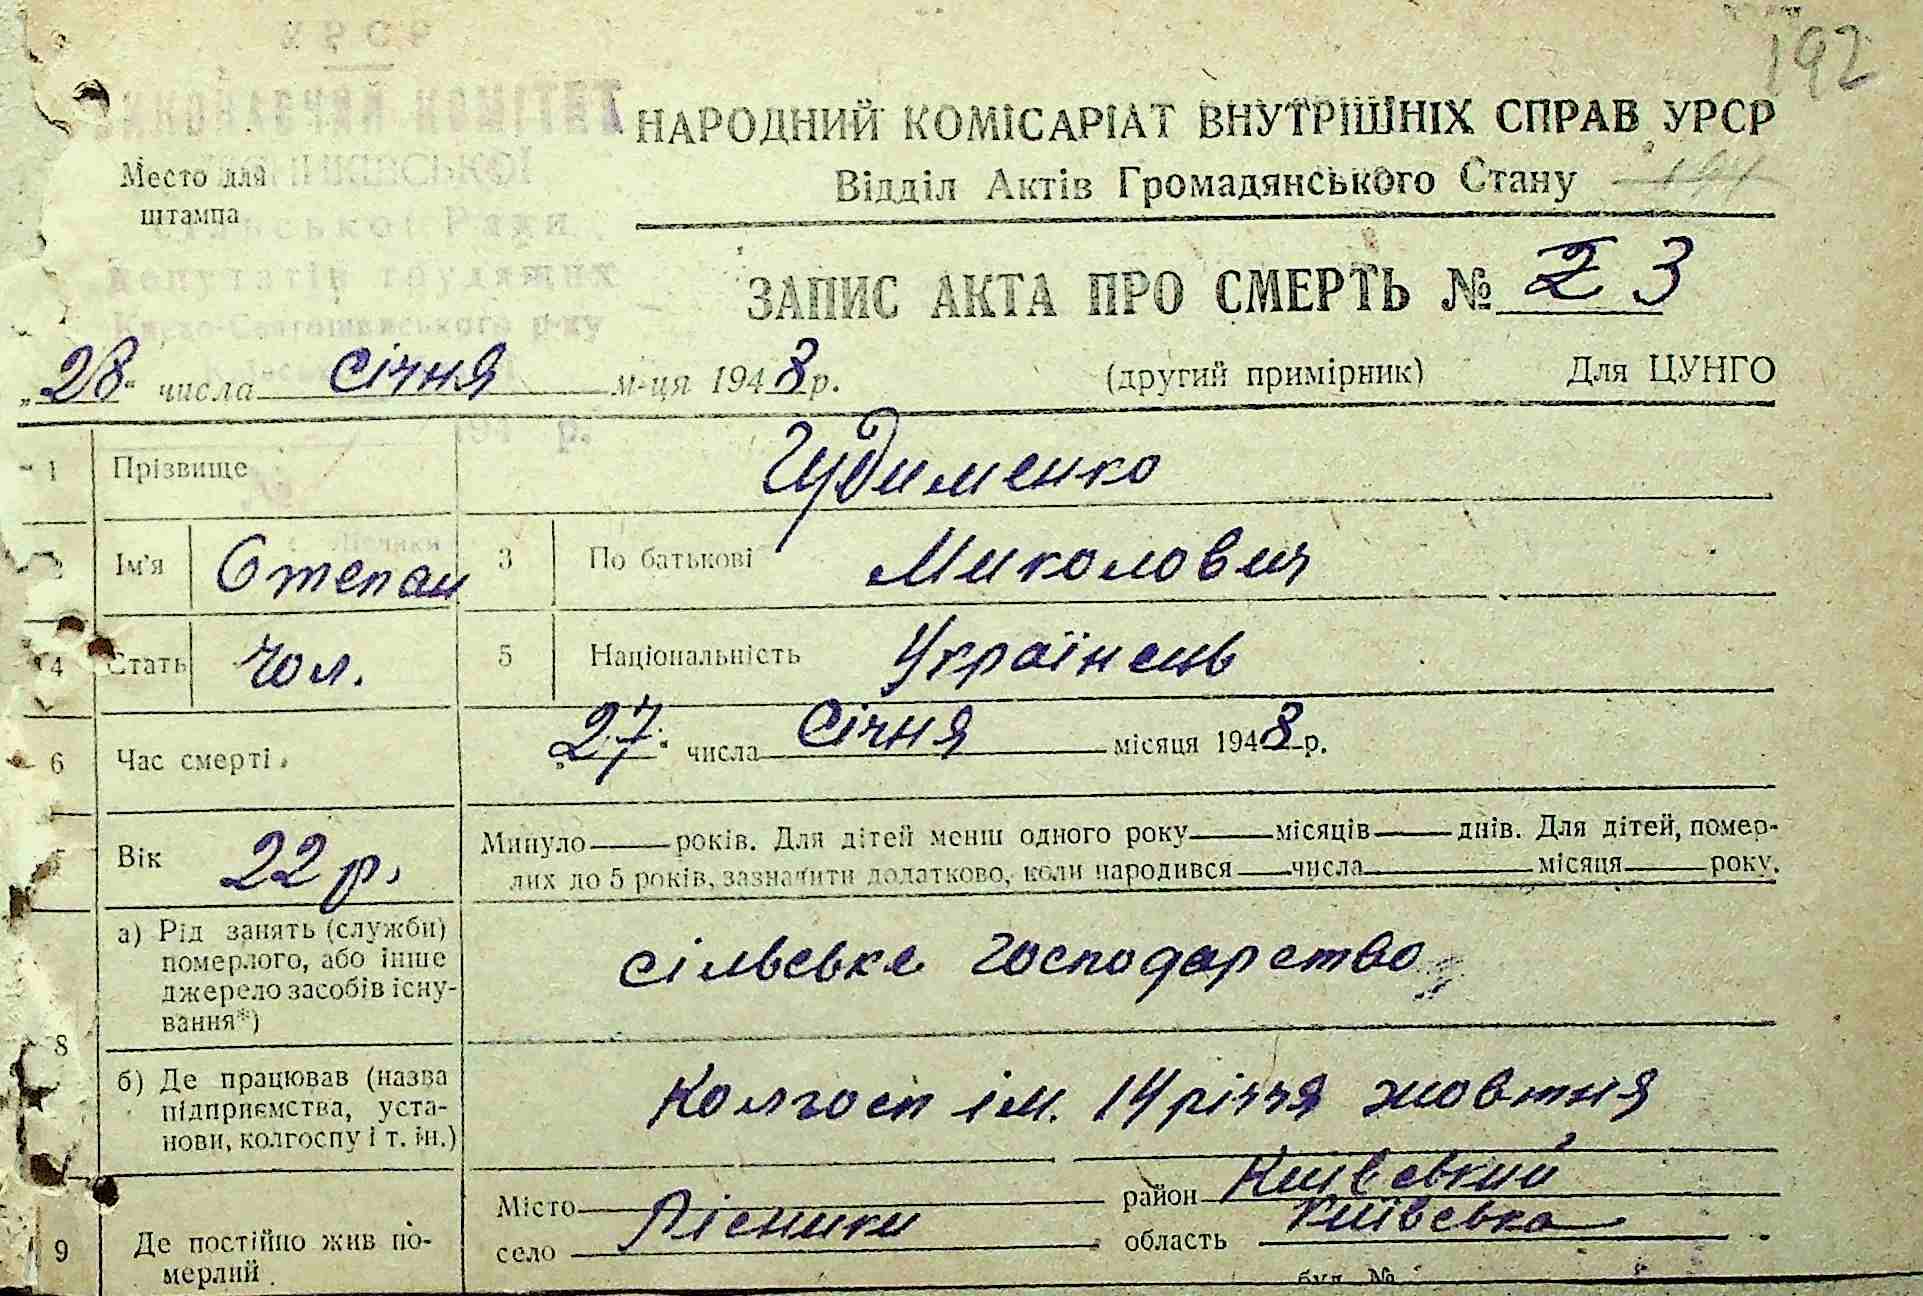 192
НАРОДНИЙ КОМІСАРІАТ ВНУТРІШНІХ СПРАВ УРСР
Место для штампа
Відділ Актів Громадянського Стану
ЗАПИС АКТА ПРО СМЕРТЬ № 3
„28" числа січня м-ця 1948 р. (другий примірник) Для ЦУНГО
1 Прізвище Гудименко
2 Ім'я Степан 3 По батькові Миколович
4 Стать чол. 5 Національність Українець
6 Час смерті. „27" числа Січня місяця 1948 р.
Вік 22 р. Минуло років. Для дітей менш одного року місяців днів. Для дітей, помер-
лих до 5 років, зазначити додатково, коли народився числа місяця року.
8 а) Рід занять (служби)
померлого, або інше
джерело засобів існу-
вання*)
сільське господарство
б) Де працював (назва
підприємства, уста-
нови, колгоспу і т. ін.)
Колгосп ім. 14 річчя жовтня
9 Де постійно жив по-
мерлий
Місто район Київський
село Лісники область Київська
буд. №